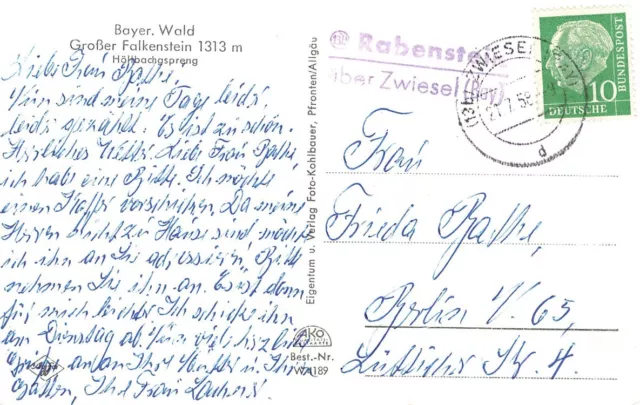 Bayer. Wald
Großer Falkenstein 1313 m
Höllbachgspreng
Liebe Frau Bathe,
Nun sind meine Tage leider,
leider gezählt. Es ist zu schön.
Herrliches Wetter. Liebe Frau Bathe,
ich habe eine Bitte. Ich möchte
einen Koffer vorschicken. Da meine
Herren nicht zu Hause sind möchte
ich ihn an Sie adressieren, Bitte
nehmen Sie ihn an. Es ist dann
für mich leichter. Ich schicke ihn
am Dienstag ab. Nun viel herzl.
an Ihre Mutter u. Ihren
Gatten, Ihre Frau
Eigentum u. Verlag Foto-Kohlbauer, Pfronten/Allgäu
AKO
Best.-Nr.
WA189
Rabenstein
über Zwiesel (Bay)
ZWIESEL
d
10
DEUTSCHE BUNDESPOST
Frau
Frieda Bathe,
Berlin N. 65,
Lütticher Str. 4.